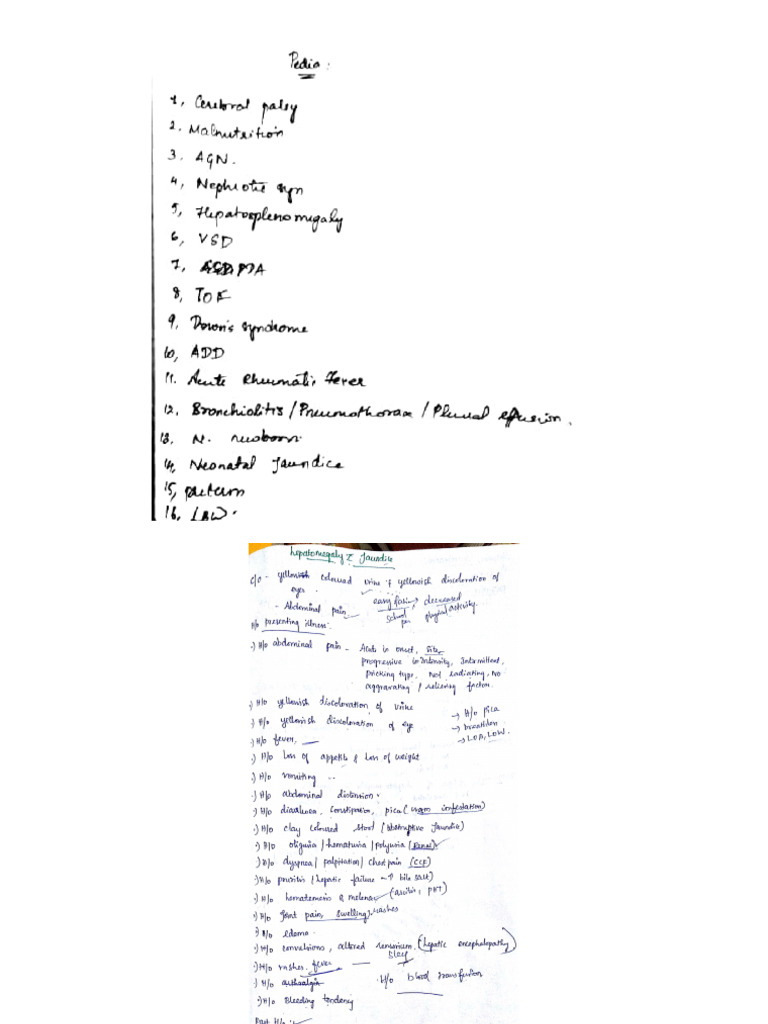 Pedia :
1, Cerebral palsy
2. Malnutrition
3. AGN.
4, Nephrotic syn
5, Hepatosplenomegaly
6, VSD
7, PDA
8, TOF
9. Down's syndrome
10, ADD
11. Acute Rheumatic Fever
12. Bronchiolitis / Pneumothorax / Plural effusion.
13. N. newborn.
14, Neonatal Jaundice
15, preterm
16. LBW.
hepatomegaly c̄ Jaundice
C/O - yellowish coloured urine & yellowish discoloration of
eyes.
- Abdominal pain easy decreased
school physical activity.
H/o presenting illness.
.) H/o abdominal pain - Acute in onset, site
progressive in intensity, Intermittent,
pricking type, Not radiating, No
aggravating / relieving factor.
.) H/o yellowish discoloration of urine
→ H/o pica
.) H/o yellowish discoloration of eye
.) H/o fever,
→ LOA, LOW.
.) H/o Loss of appetite & Loss of weight
.) H/o vomiting
.) H/o abdominal distension.
.) H/o diarrhoea, Constipation, pica (worm infestation)
.) H/o clay coloured stool (obstructive Jaundice)
.) H/o oliguria / hematuria / polyuria (Renal)
.) H/o dyspnea / palpitation / chest pain (CCF)
.) H/o pruritis / hepatic failure - ↑ bile salt)
.) H/o hematemesis & melena
.) H/o Joint pain, swelling, rashes
.) H/o edema
.) H/o convulsions, altered sensorium (hepatic encephalopathy)
sleep
.) H/o rashes, fever
.) H/o arthralgia H/o blood transfusion
.) H/o Bleeding tendency
Past H/o :